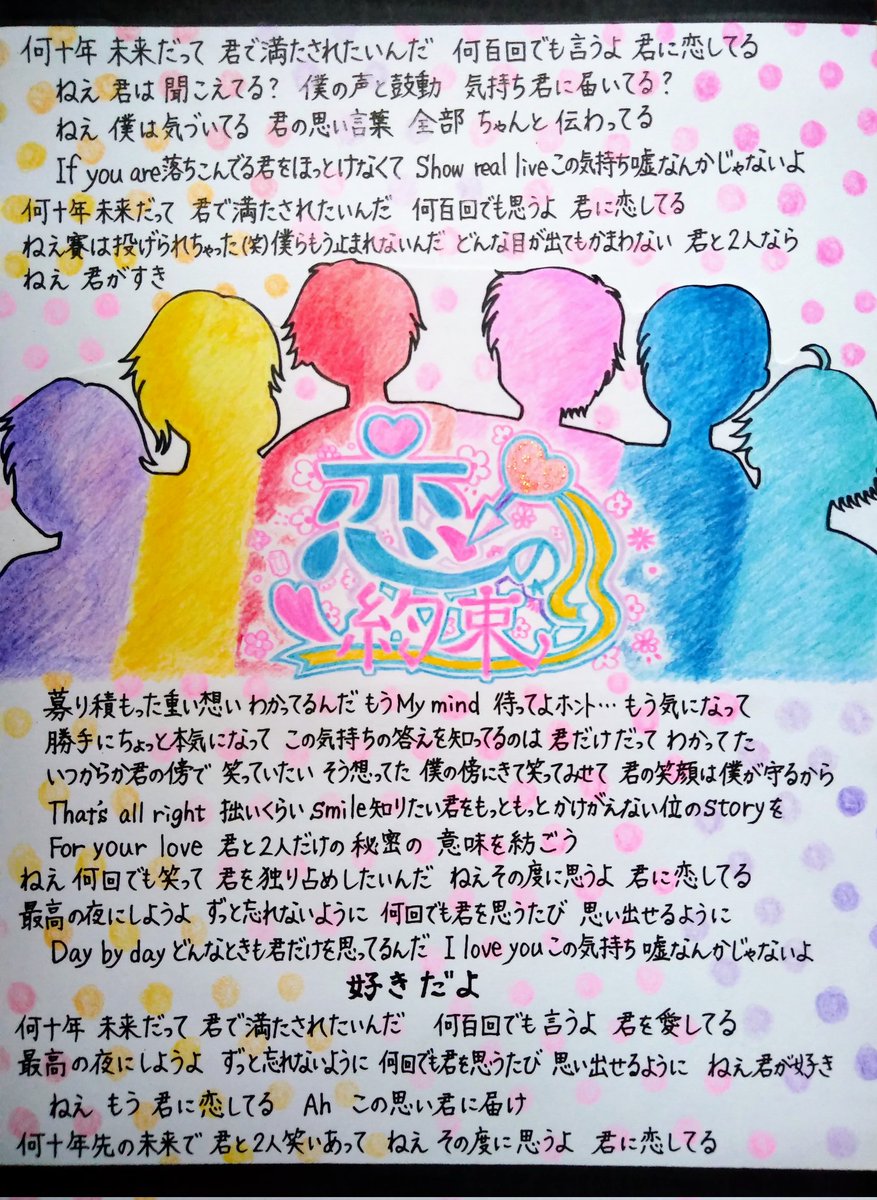 何十年 未来だって 君で満たされたいんだ 何百回でも言うよ 君に恋してる
ねえ 君は 聞こえてる? 僕の声と鼓動 気持ち君に届いてる?
ねえ 僕は気づいてる 君の思い言葉 全部 ちゃんと 伝わってる
If you are落ちこんでる君をほっとけなくて Show real liveこの気持ち嘘なんかじゃないよ
何十年未来だって 君で満たされたいんだ 何百回でも思うよ 君に恋してる
ねえ賽は投げられちゃった(笑)僕らもう止まれないんだ どんな目が出てもかまわない 君と2人なら
ねえ 君がすき
恋の
約束
募り積もった重い想い わかってるんだ もうMy mind 待ってよホント… もう気になって
勝手にちょっと本気になって この気持ちの答えを知ってるのは 君だけだって わかってた
いつからか君の傍で 笑っていたい そう想ってた 僕の傍にきて笑ってみせて 君の笑顔は僕が守るから
That's all right 拙いくらい smile知りたい君をもっともっとかけがえない位のstoryを
For your love 君と2人だけの秘密の 意味を紡ごう
ねえ 何回でも笑って 君を独り占めしたいんだ ねえその度に思うよ 君に恋してる
最高の夜にしようよ ずっと忘れないように 何回でも君を思うたび 思い出せるように
Day by day どんなときも君だけを思ってるんだ I love you この気持ち 嘘なんかじゃないよ
好きだよ
何十年 未来だって 君で満たされたいんだ 何百回でも 言うよ 君を愛してる
最高の夜にしようよ ずっと忘れないように 何回でも君を思うたび 思い出せるように ねえ君が好き
ねえ もう 君に恋してる Ah この思い君に届け
何十年先の未来で 君と2人笑いあって ねえ その度に思うよ 君に恋してる